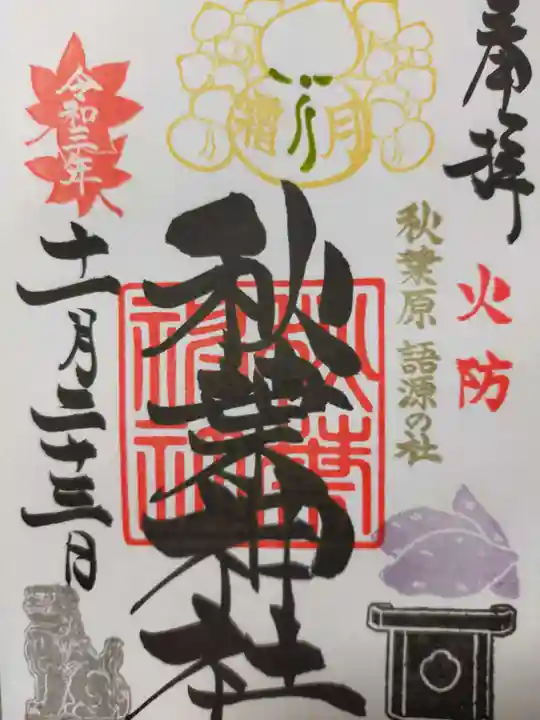 奉拝
火防
秋葉原 語源の社
霜月
秋葉神社
秋葉
神社
令和三年
十一月二十三日